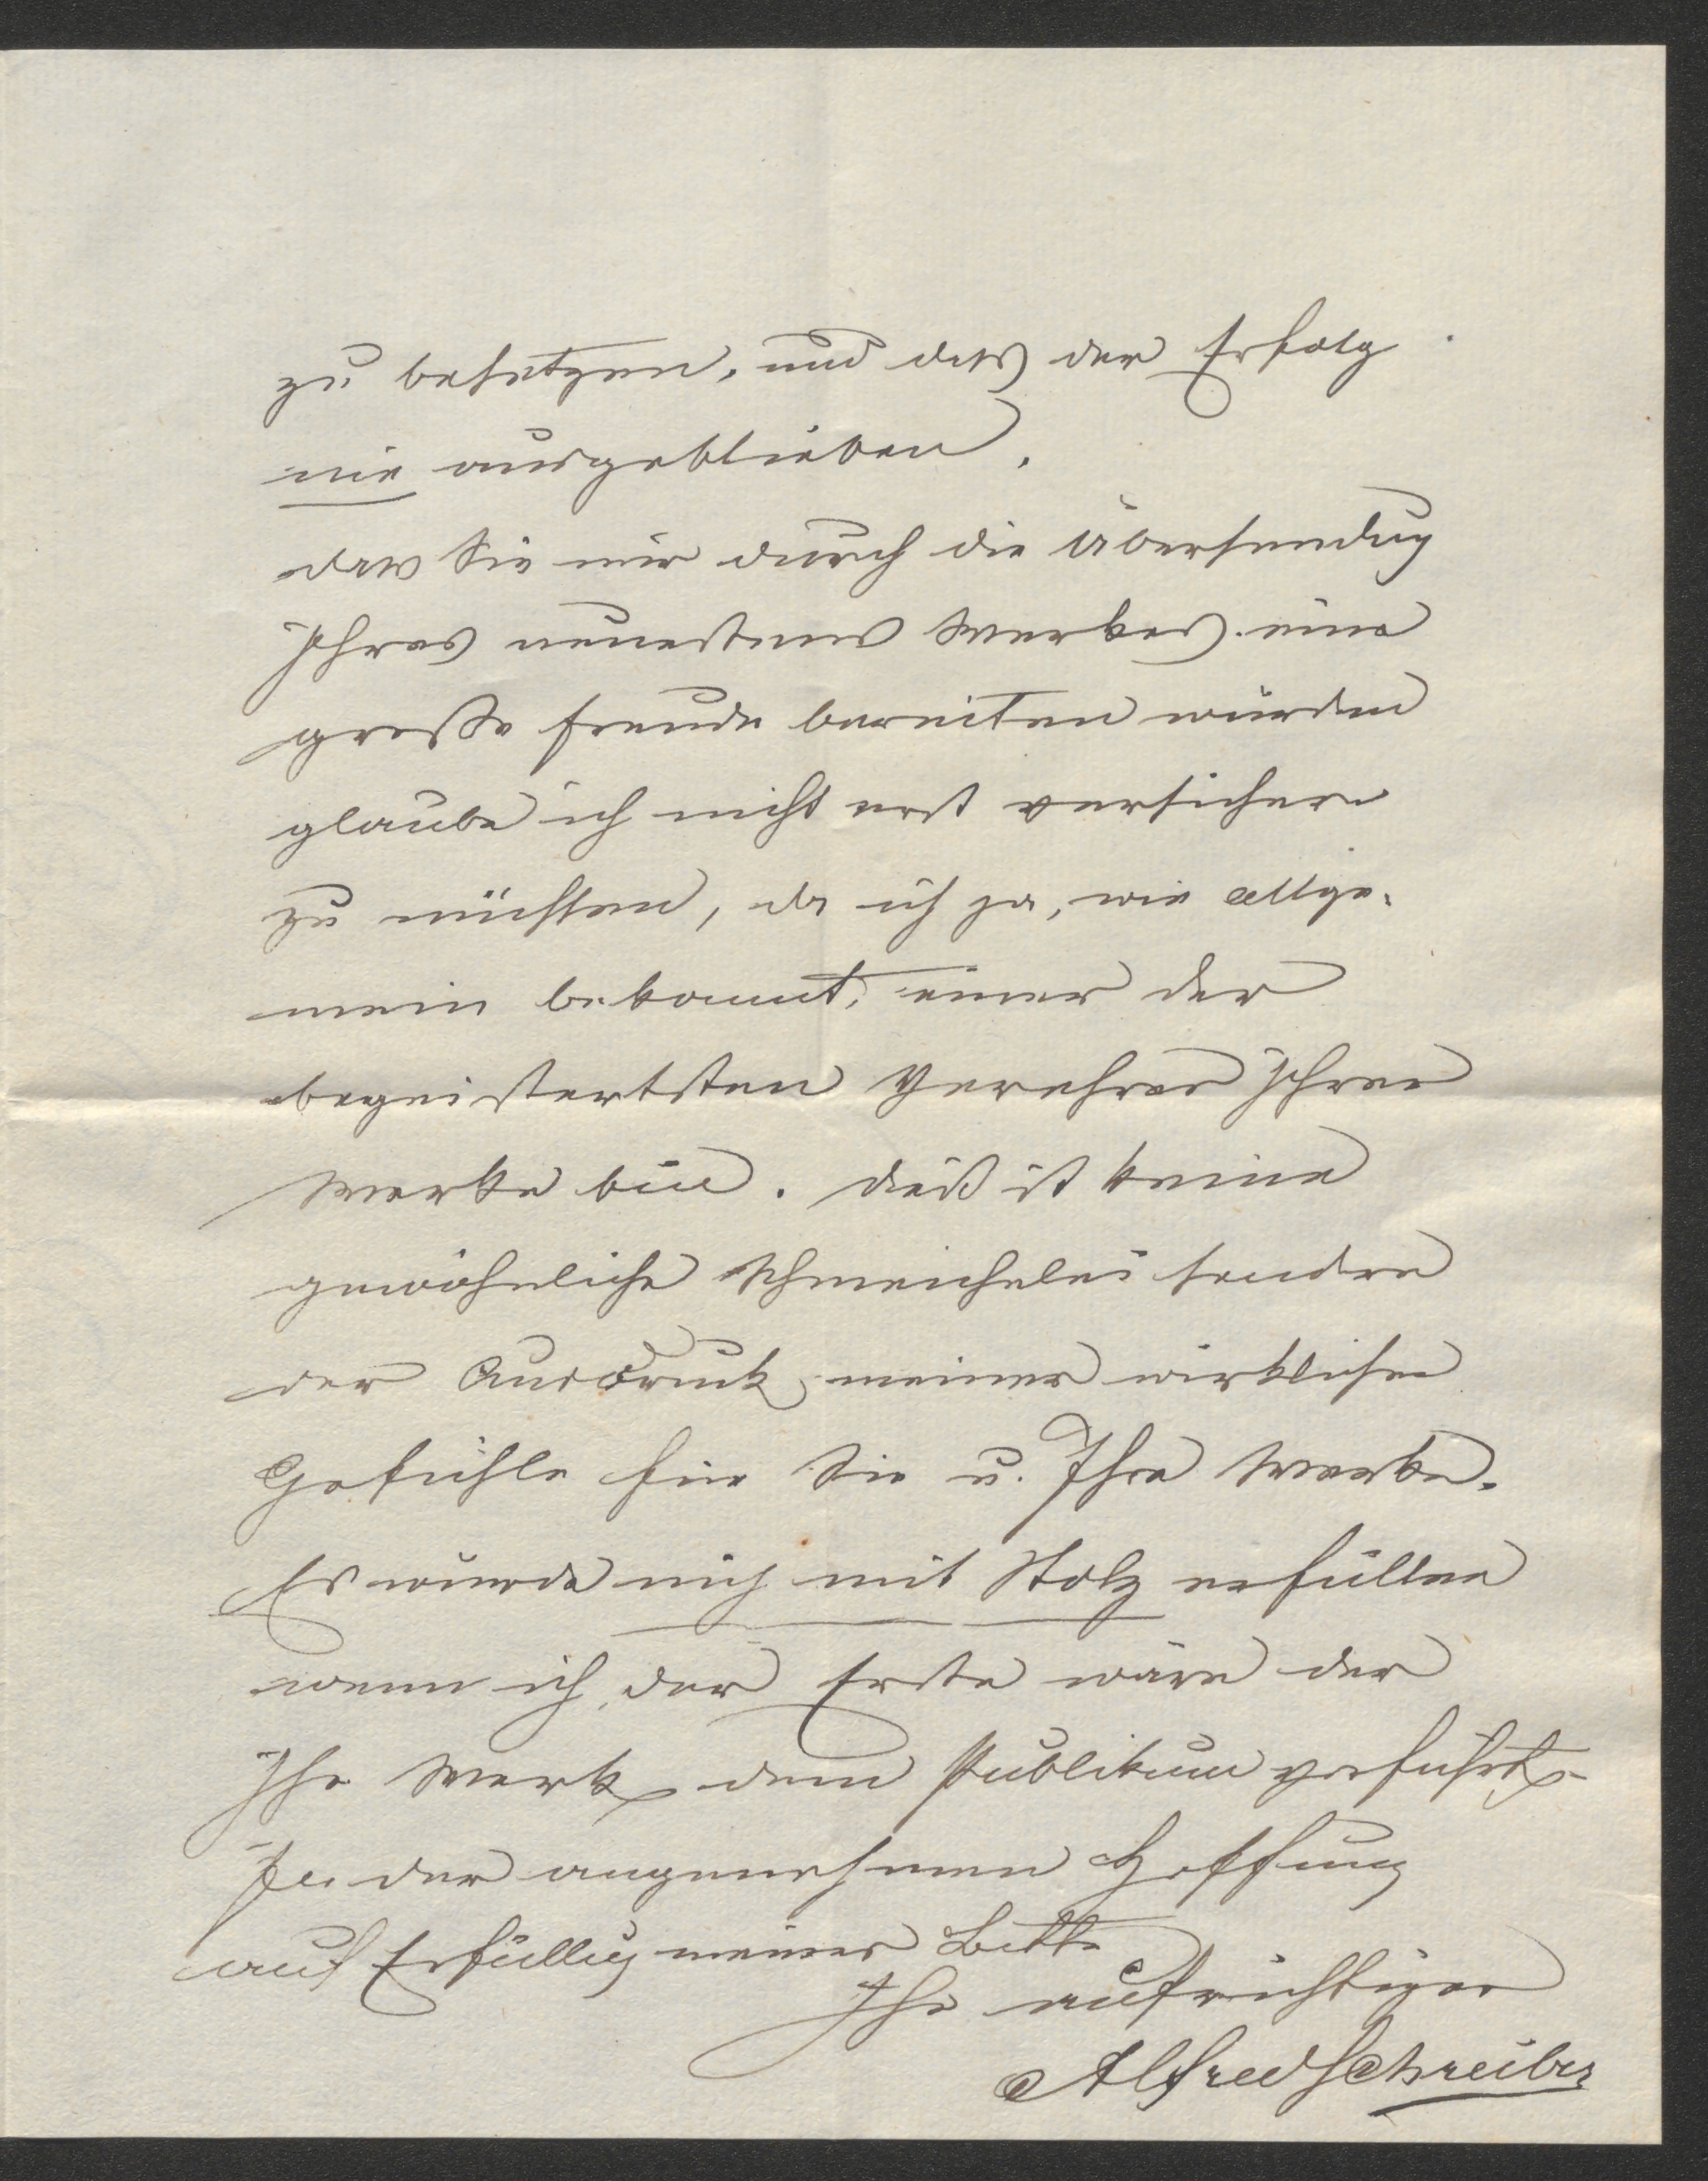 zu besetzen, und dass der Erfolg
nie ausgeblieben.
dass Sie mir durch die Übersendung
Ihres neuesten Werkes eine
große Freude bereiten würden
glaube ich nicht erst versichern
zu müssen, da ich ja, wie allge-
mein bekannt, einer der
begeistertsten Verehrer Ihrer
Werke bin. Dieß ist keine
gewöhnliche Schmeichelei sondern
der Ausdruck meiner wirklichen
Gefühle für Sie u. Ihre Werke.
Es würde mich mit Stolz erfüllen
wenn ich der Erste wäre der
Ihr Werk dem Publikum vorführt.
In der angenehmen Hoffnung
auf Erfüllung meiner Bitte
Ihr aufrichtiger
Alfred Schreiber